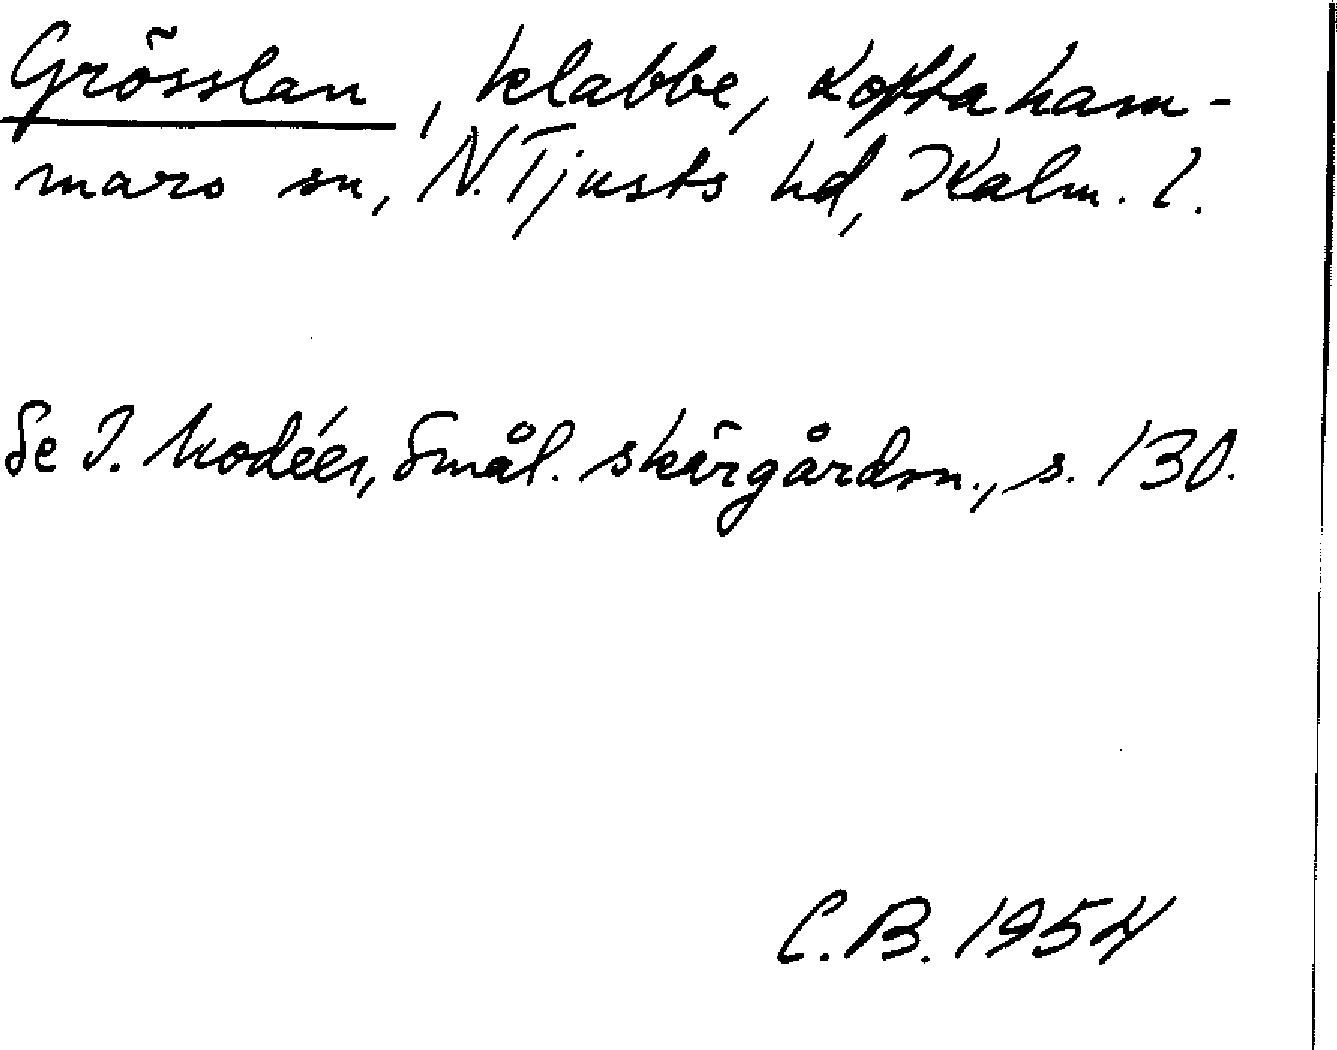 Grösslan, klabbe, Loftaham-
mars sn, N. Tjusts hd, Kalm. l.
Se I. Modéer, Smål. skärgårdsn., s. 130.
C.B. 1954